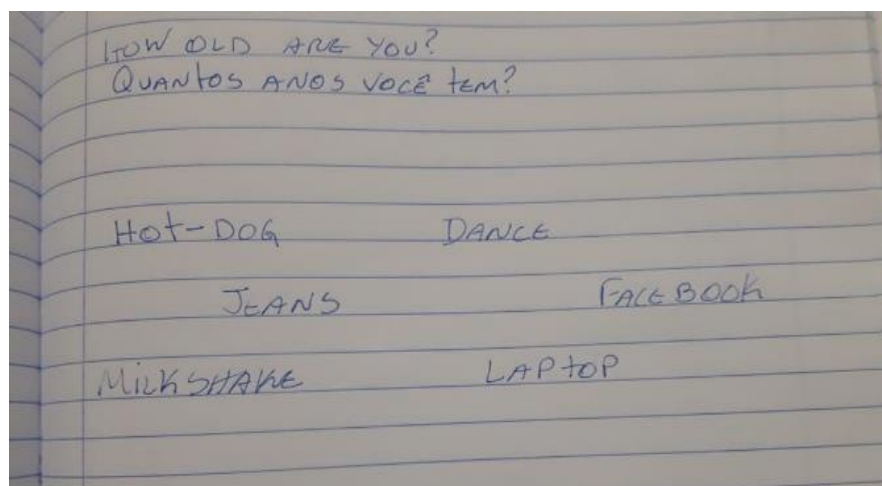 HOW OLD ARE YOU?
QUANTOS ANOS VOCÊ TEM?
HOT-DOG DANCE
JEANS FACEBOOK
MILKSHAKE LAPTOP